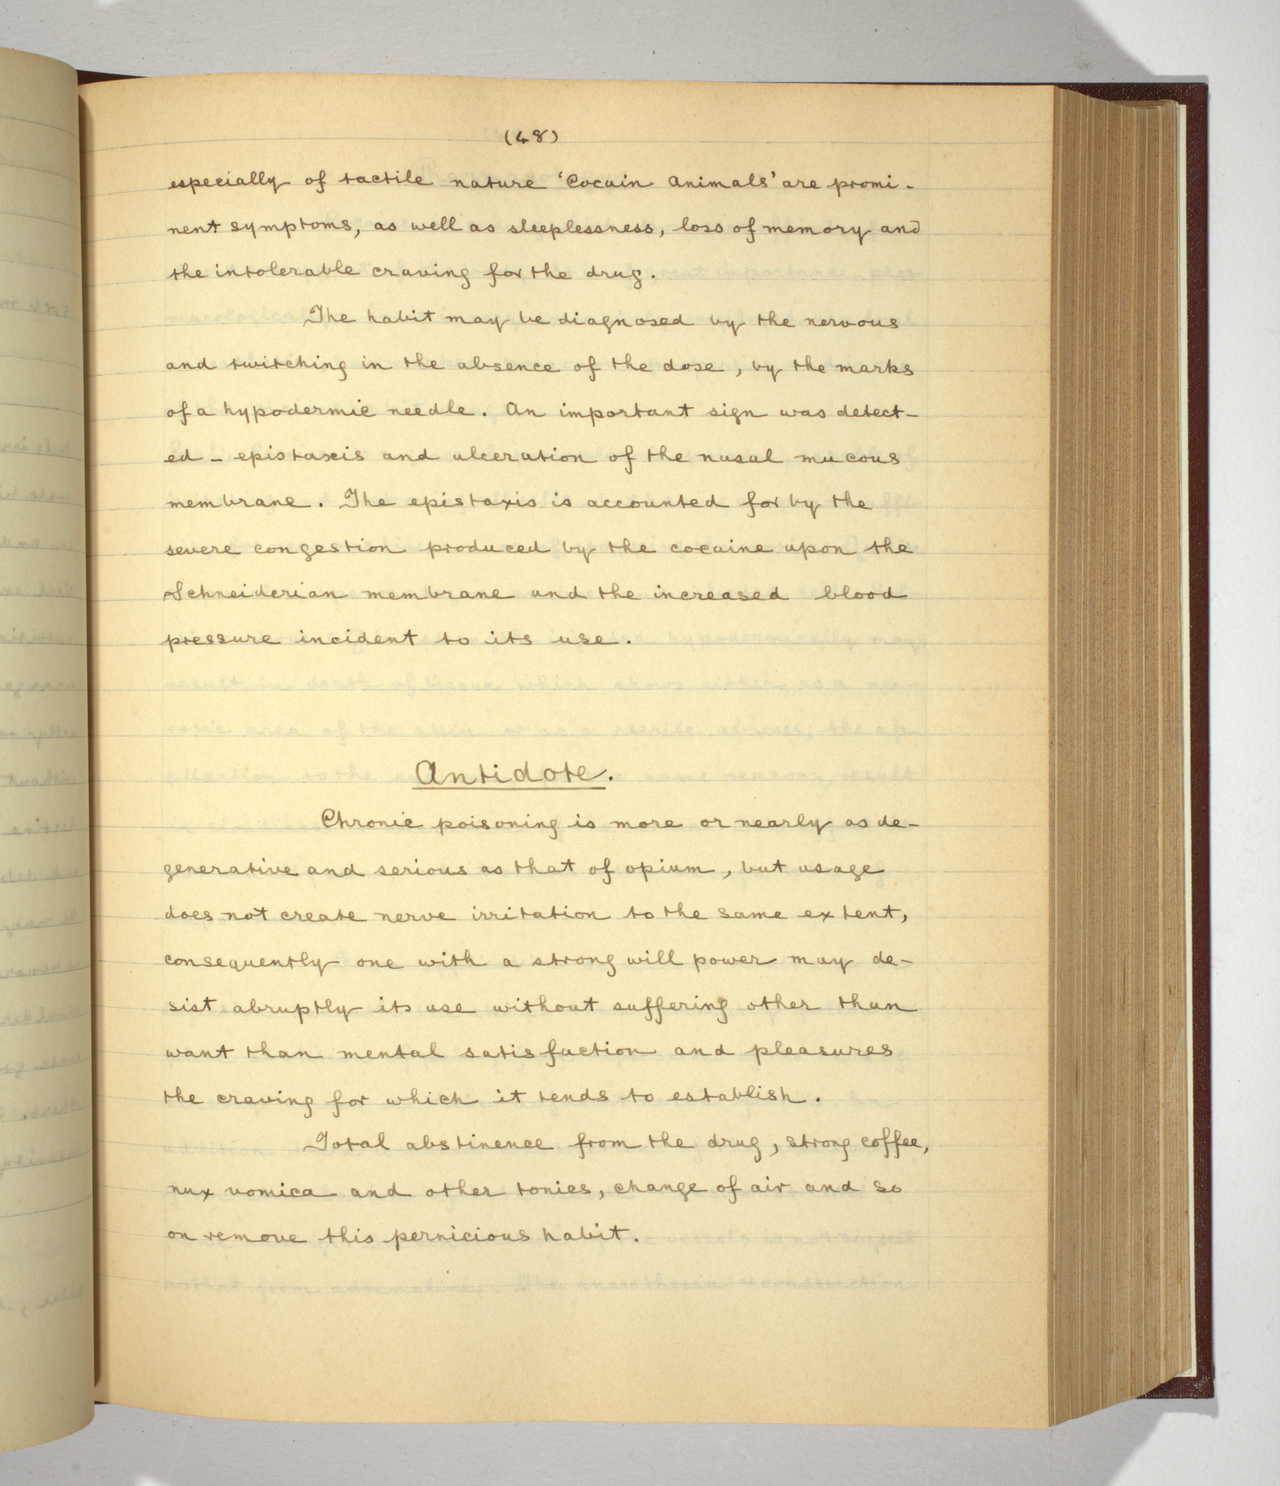 (48)
especially of tactile nature 'Cocain Animals' are promi-
nent symptoms, as well as sleeplessness, loss of memory and
the intolerable craving for the drug.
The habit may be diagnosed by the nervous
and twitching in the absence of the dose, by the marks
of a hypodermic needle. An important sign was detect-
ed - epistaxis and ulceration of the nasal mucous
membrane. The epistaxis is accounted for by the
severe congestion produced by the cocaine upon the
Schneiderian membrane and the increased blood
pressure incident to its use.
Antidote.
Chronic poisoning is more or nearly as de-
generative and serious as that of opium, but usage
does not create nerve irritation to the same extent,
consequently one with a strong will power may de-
sist abruptly its use without suffering other than
want than mental satisfaction and pleasures
the craving for which it tends to establish.
Total abstinence from the drug, strong coffee,
nux vomica and other tonics, change of air and so
on remove this pernicious habit.